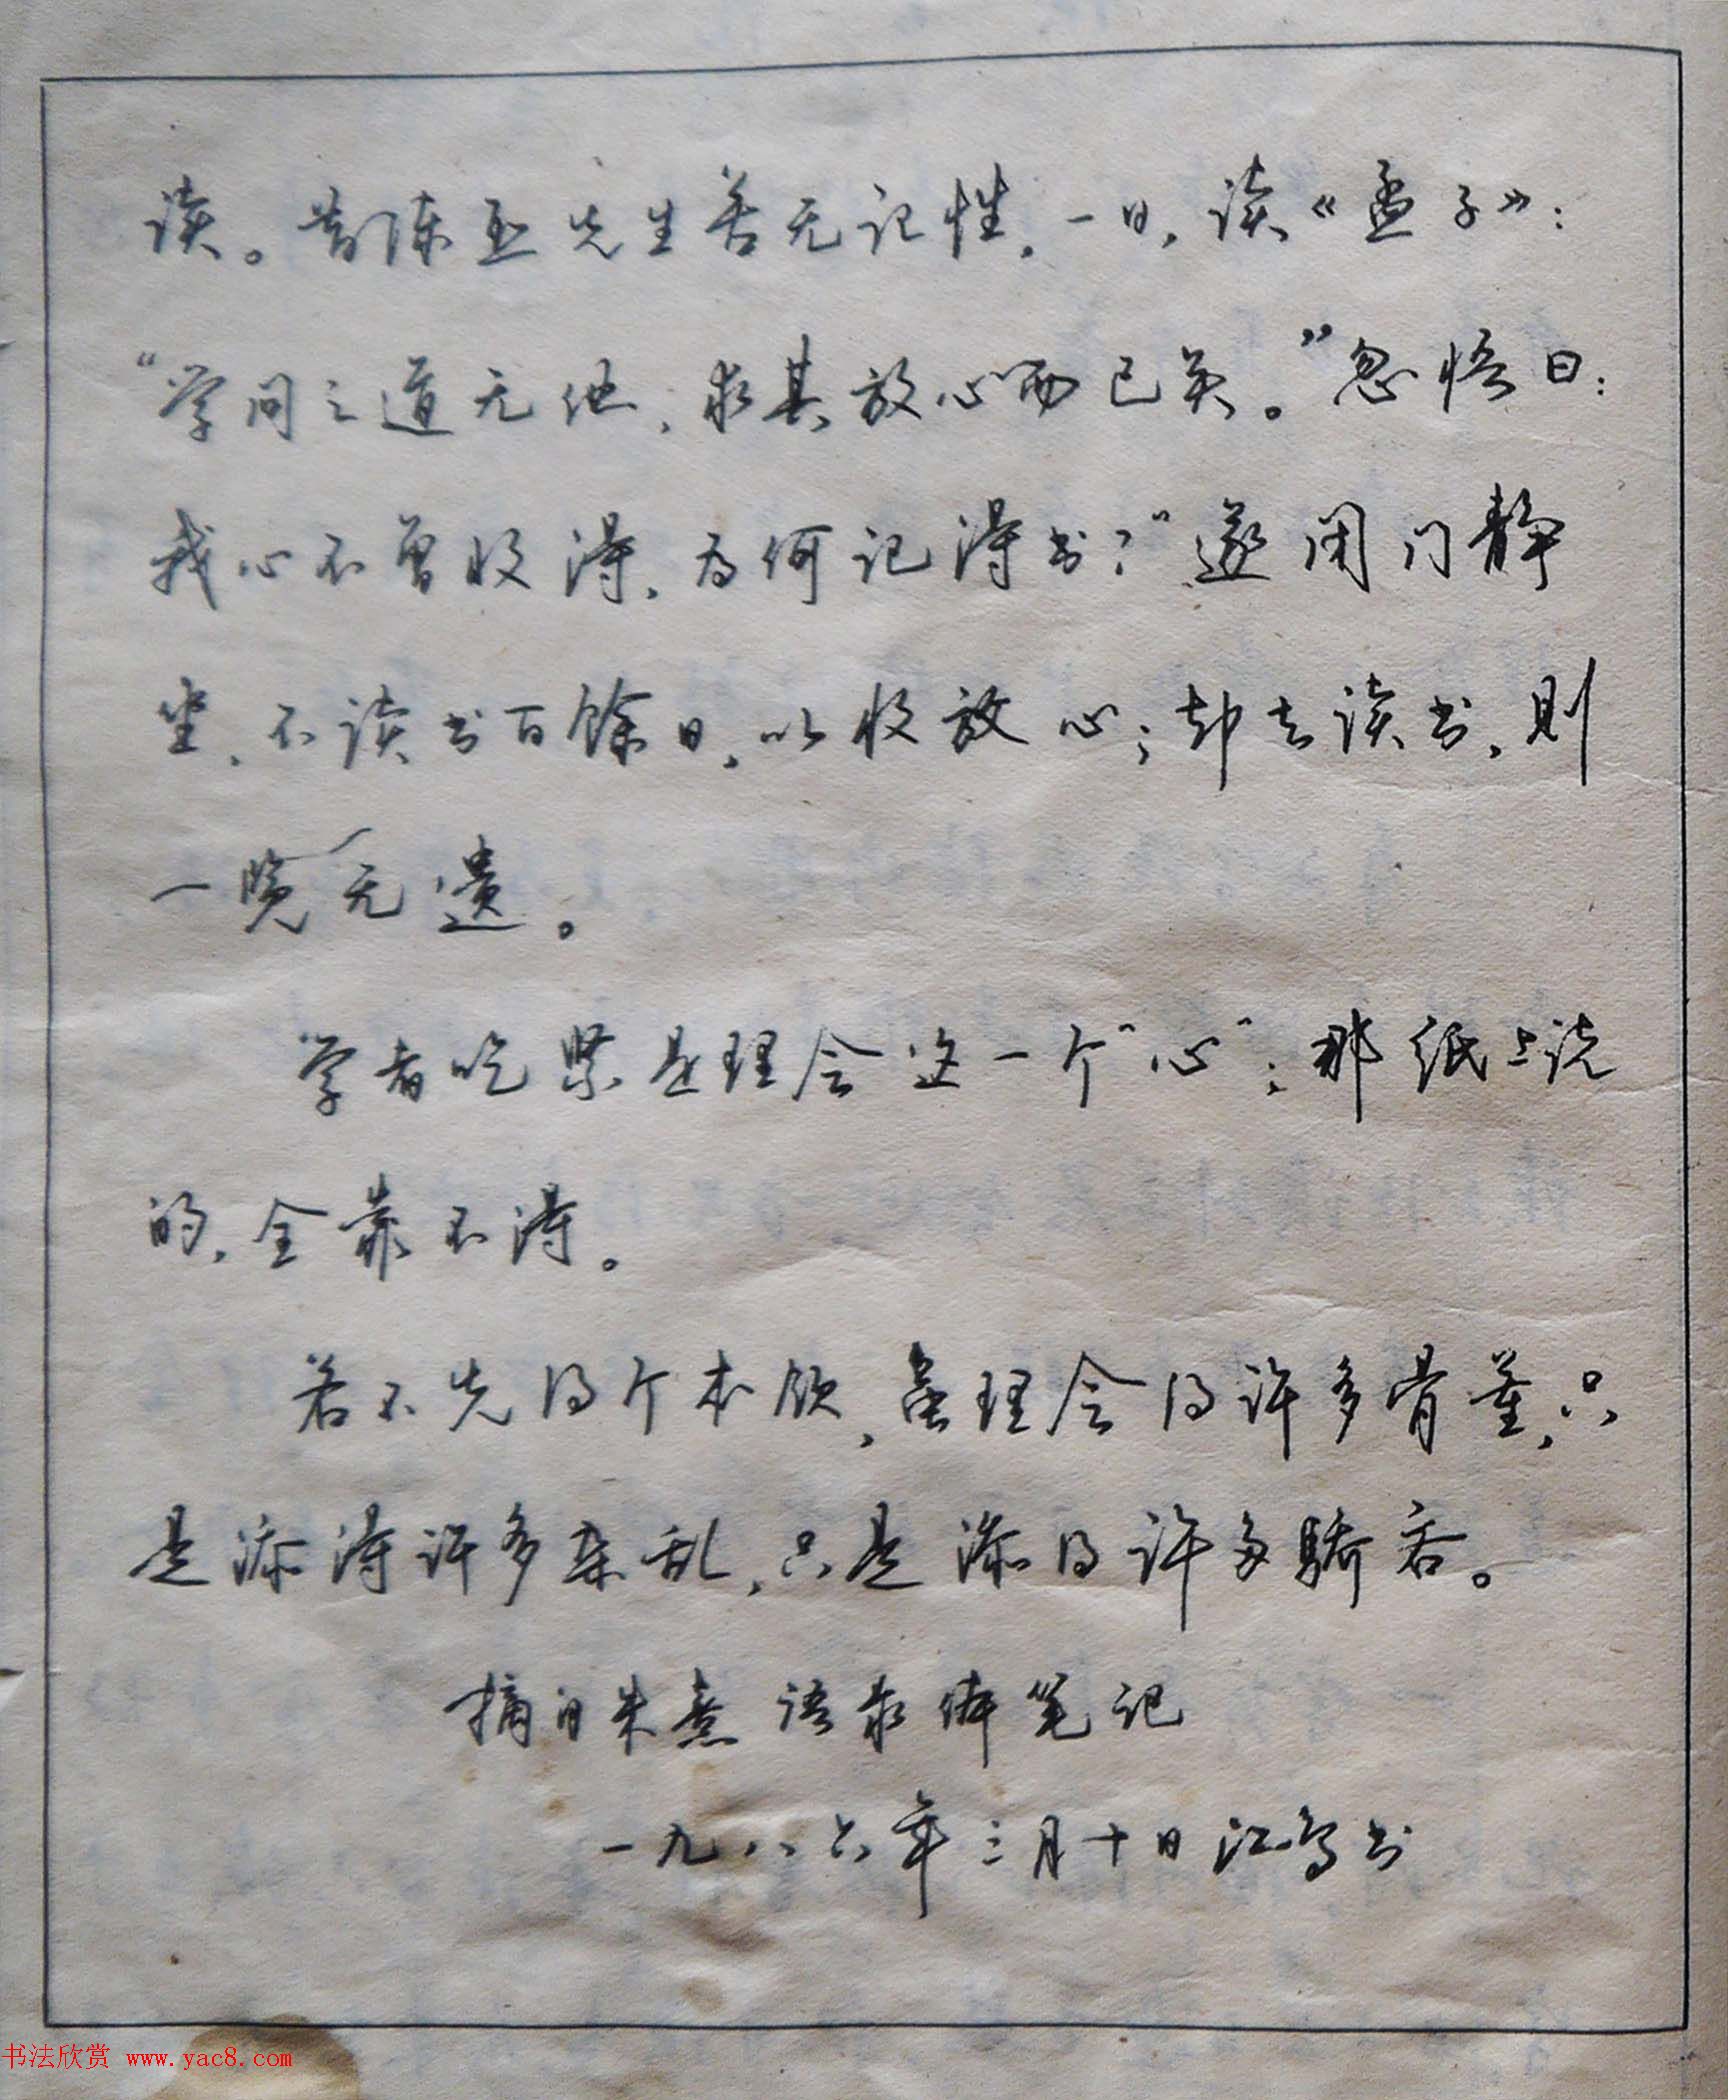 读。昔陈亚先生苦无记性，一日，读《孟子》：
“学问之道无他，求其放心而已矣。”忽悟曰：
我心不曾收得，为何记得书？”遂闭门静
坐，不读书百馀日，以收放心；却去读书，则
一览无遗。
学者吃紧是理会这一个“心”；那纸上说
的，全靠不得。
若不先得个本领，虽理会得许多骨董，只
是添得许多杂乱，只是添得许多骄吝。
摘自朱熹语录体笔记
一九八六年三月十日江鸟书
书法欣赏 www.yac8.com